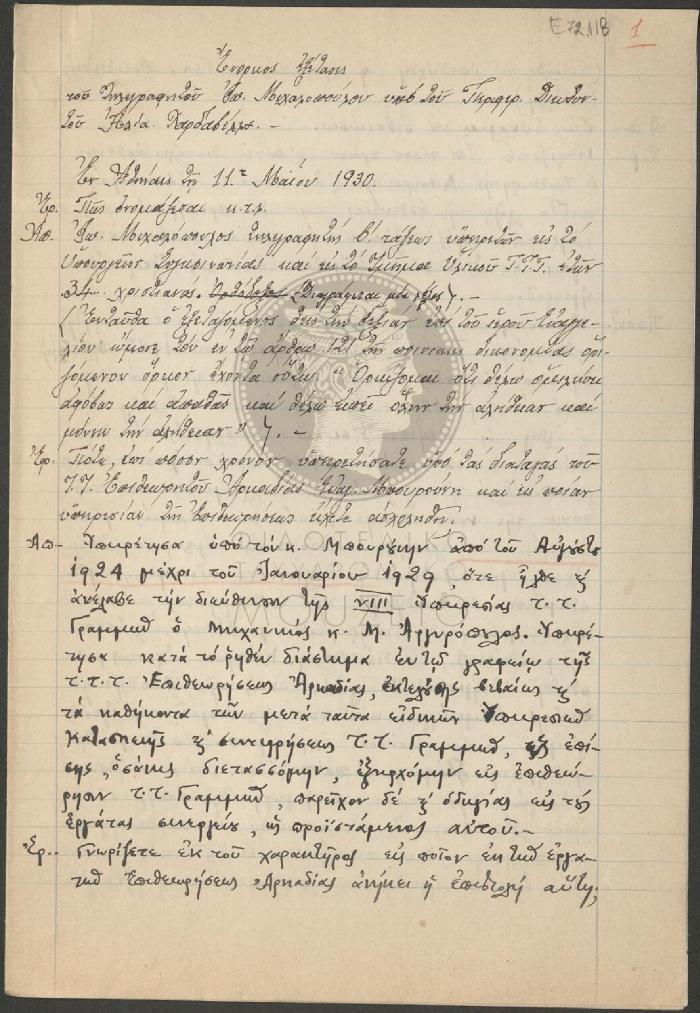 Ε72.118 1
Ἔνορκος ἐξέτασις
τοῦ τηλεγραφητοῦ Μιχαλοπούλου ὑπὸ τοῦ Περιφερ. Διευθυν-
τοῦ Ἠλία Χαρδαβέλλα. —
Ἐν Ἀθήναις τῇ 11ῃ Μαΐου 1930.
Ἐρ. Πῶς ὀνομάζεσαι κ.τ.λ.
Ἀπ. Μιχαλόπουλος τηλεγραφητὴς Β΄ τάξεως ὑπηρετῶν εἰς τὸ
Ὑπουργεῖον Συγκοινωνίας καὶ εἰς τὸ Τμῆμα Ὑλικοῦ Τ.Τ.Τ. ἐτῶν
34 χριστιανὸς Ὀρθόδοξος (Διαγράφεται μία λέξις). —
(Ἐνταῦθα ὁ ἐξεταζόμενος θεὶς τὴν δεξιὰν ἐπὶ τοῦ ἱεροῦ Εὐαγγε-
λίου ὤμοσε τὸν ἐν τῷ ἄρθρῳ 121 τῆς ποινικῆς δικονομίας ὁρι-
ζόμενον ὅρκον ἔχοντα οὕτω "Ὁρκίζομαι ὅτι θέλω ὁμιλήσει
ἀφόβως καὶ ἀπαθῶς καὶ θέλω εἰπεῖ ὅλην τὴν ἀλήθειαν καὶ
μόνην τὴν ἀλήθειαν"). —
Ἐρ. Πότε, ἐπὶ πόσον χρόνον ὑπηρετήσατε ὑπὸ τὰς διαταγὰς τοῦ
Τ.Τ. Ἐπιθεωρητοῦ Ἀρκαδίας καὶ εἰς ποίαν
ὑπηρεσίαν τῆς Ἐπιθεωρήσεως εἴχετε ἀσχοληθῆ.
Ἀπ— Ὑπηρέτησα ὑπὸ τὸν κ. ἀπὸ τοῦ Αὐγούστου
1924 μέχρι τοῦ Ἰανουαρίου 1929, ὅτε ἦλθε κ̀
ἀνέλαβε τὴν διεύθυνσιν τῆς VIII Ὑπηρεσίας Τ.Τ.
Γραμμῶν ὁ μηχανικὸς κ. Μ. Ἀργυρόπουλος. Ὑπηρέ-
τησα κατὰ τὸ ῥηθὲν διάστημα ἐν τῷ γραφείῳ τῆς
Τ.Τ.Τ. Ἐπιθεωρήσεως Ἀρκαδίας, ἐκτελέσας βεβαίως κ̀
τὰ καθήκοντα τῶν μετὰ ταῦτα εἰδικῶν Ὑπηρεσιῶν
Κατασκευῆς κ̀ συντηρήσεως Τ.Τ. Γραμμῶν, ἐπί-
σης, ὁσάκις διετασσόμην, ἐξηρχόμην εἰς ἐπιθεώ-
ρησιν Τ.Τ. Γραμμῶν, παρεῖχον δὲ κ̀ ὁδηγίας εἰς τοὺς
ἐργάτας συνεργείου, ὡς προϊστάμενος αὐτοῦ. —
Ἐρ. — Γνωρίζετε ἐκ τοῦ χαρακτῆρος εἰς ποῖον ἐκ τῶν ἐργα-
τῶν Ἐπιθεωρήσεως Ἀρκαδίας ἀνήκει ἡ ἐπιστολὴ αὕτη;
ΦΙΛΟΤΕΛΙΚΟ
ΜΟΥΣΕΙΟ